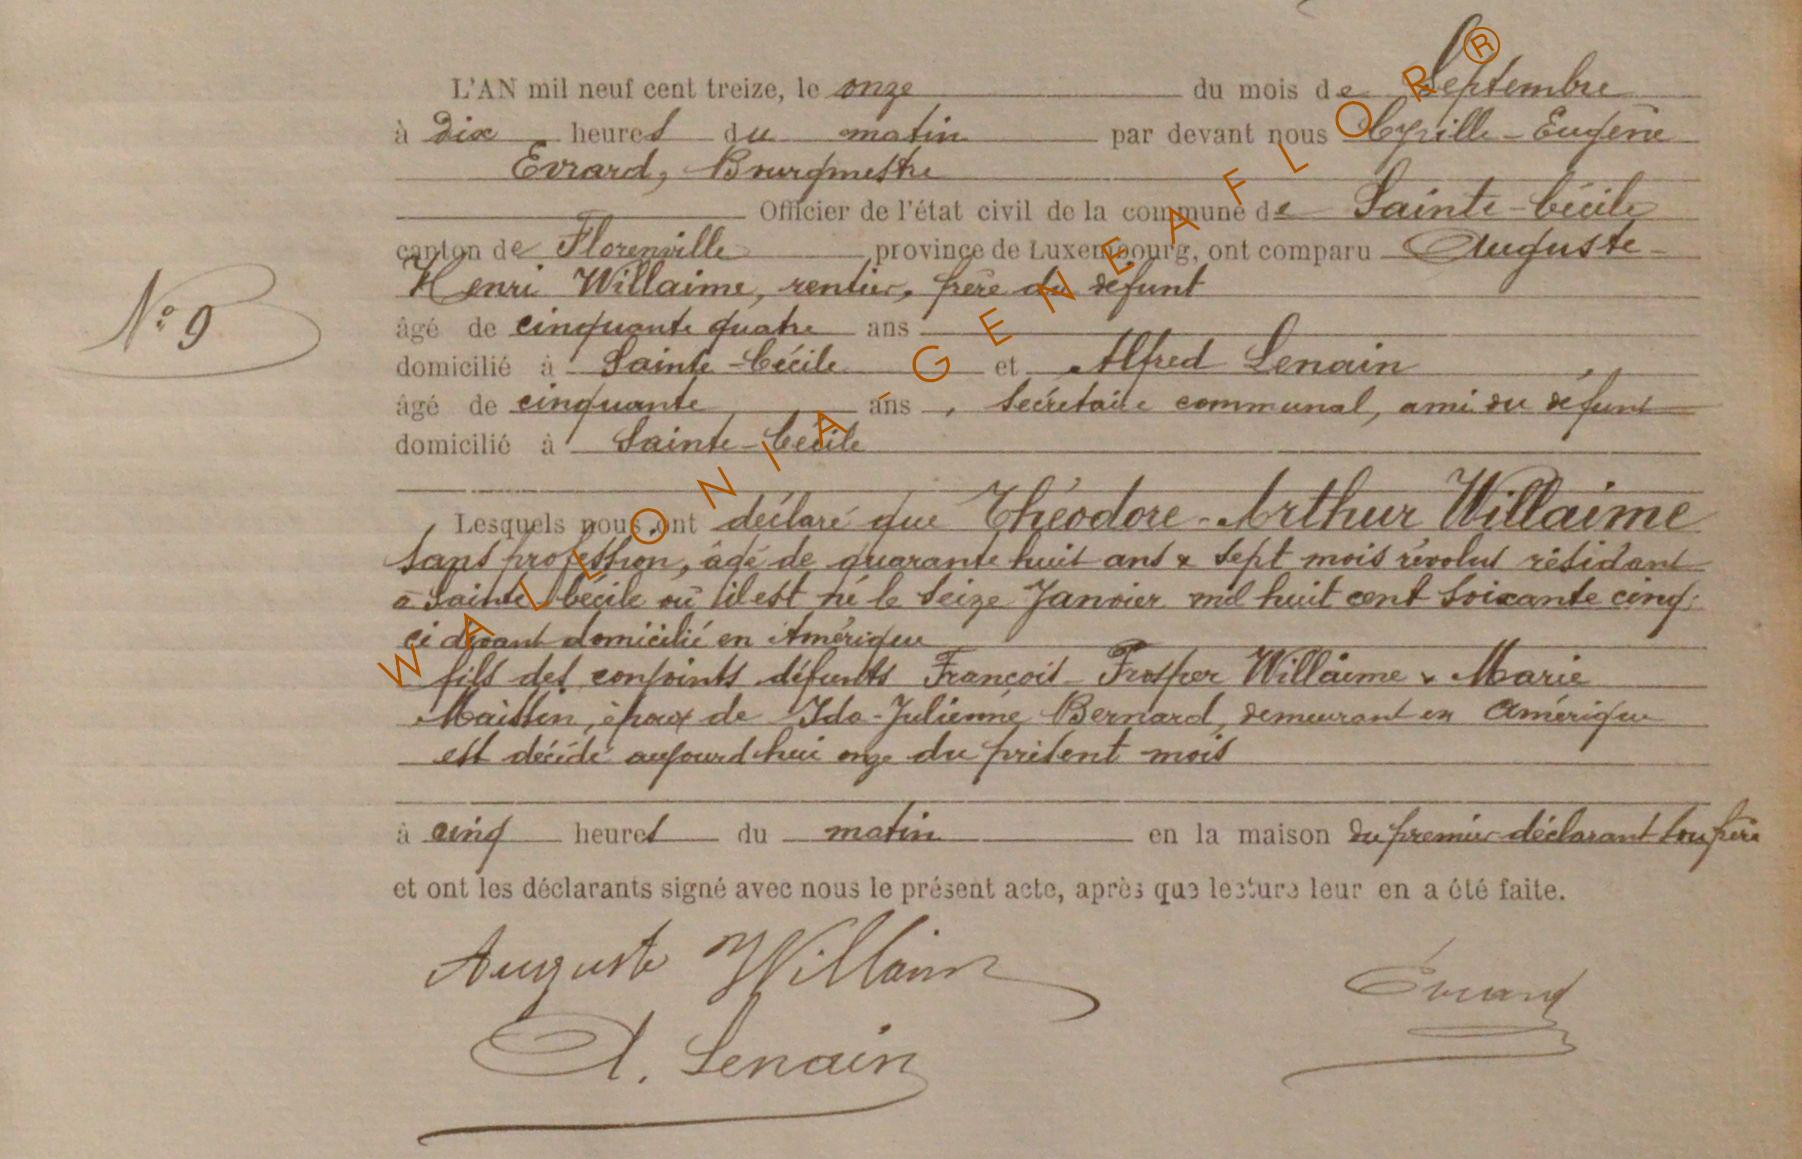 L'AN mil neuf cent treize, le onze du mois de Septembre
à dix heures du matin par devant nous Cyrille-Eugène
Evrard, Bourgmestre
Officier de l'état civil de la commune de Sainte-Cécile
canton de Florenville province de Luxembourg, ont comparu Auguste-
Henri Willaime, rentier, frère du défunt
N° 9
âgé de cinquante quatre ans
domicilié à Sainte-Cécile et Alfred Lenain
âgé de cinquante ans, secrétaire communal, ami du défunt
domicilié à Sainte-Cécile
Lesquels nous ont déclaré que Théodore-Arthur Willaime
sans profession, âgé de quarante huit ans & sept mois révolus résidant
à Sainte Cécile où il est né le seize Janvier mil huit cent soixante cinq,
ci devant domicilié en Amérique
fils des conjoints défunts François-Prosper Willaime & Marie
Maissin, époux de Ida-Julienne Bernard, demeurant en Amérique
est décédé aujourd'hui onze du présent mois
à cinq heures du matin en la maison du premier déclarant son frère
et ont les déclarants signé avec nous le présent acte, après que lecture leur en a été faite.
Auguste Willaime
Evrard
A. Lenain
WALLONIA-GENEAFLOR®